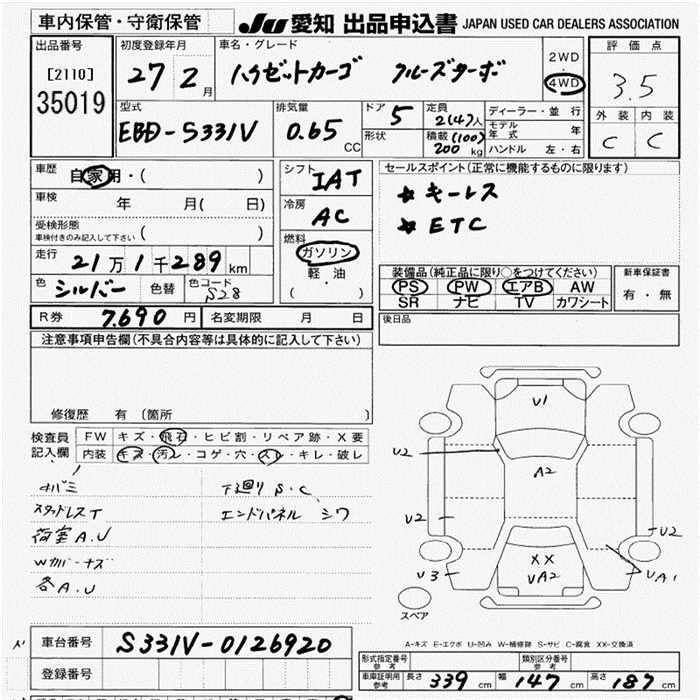 車内保管・守衛保管 JU 愛知 出品申込書 JAPAN USED CAR DEALERS ASSOCIATION
出品番号 [2110] 35019
初度登録年月 27 2月
車名・グレード ハイゼットカーゴ クルーズターボ
2WD・4WD
評価点 3.5
外装 内装
C C
型式 EBD-S331V
排気量 0.65 CC
ドア 5
形状
定員 2(4)人
積載 (100) 200 kg
ディーラー・並行
モデル年式 年
ハンドル 左・右
車歴 自家用・( )
車検 年 月( 日)
受検形態 車検付きのみ記入して下さい ( )
走行 21万1千289km
色 シルバー 色替 色コード S28
シフト IAT
冷房 AC
燃料 ガソリン
軽・油
( )
セールスポイント(正常に機能するものに限ります)
★キーレス
★ETC
装備品(純正品に限り○をつけてください)
PS PW エアB AW
SR ナビ TV カワシート
新車保証書 有・無
R券 7,690円 名変期限 月 日
後日品
注意事項申告欄(不具合内容等は具体的に記入して下さい)
修復歴 有 (箇所 )
検査員記入欄 FW キズ・飛石・ヒビ割・リペア跡・X要
内装 キズ・汚レ・コゲ・穴・スレ・キレ・破レ
下廻りS・C
スタッドレスT エンドパネル シワ
荷室A.U
各A.U
U1
U2 A2
U2 U2
XX
UA2
U3 UA1
スペア
A-キズ E-エクボ U-凹み W-補修跡 S-サビ C-腐食 XX-交換済
車台番号 S331V-0126920
登録番号
形式指定番号 参考 類別区分番号 参考
車庫証明用 参考 長さ 339cm 幅 147cm 高さ 187cm